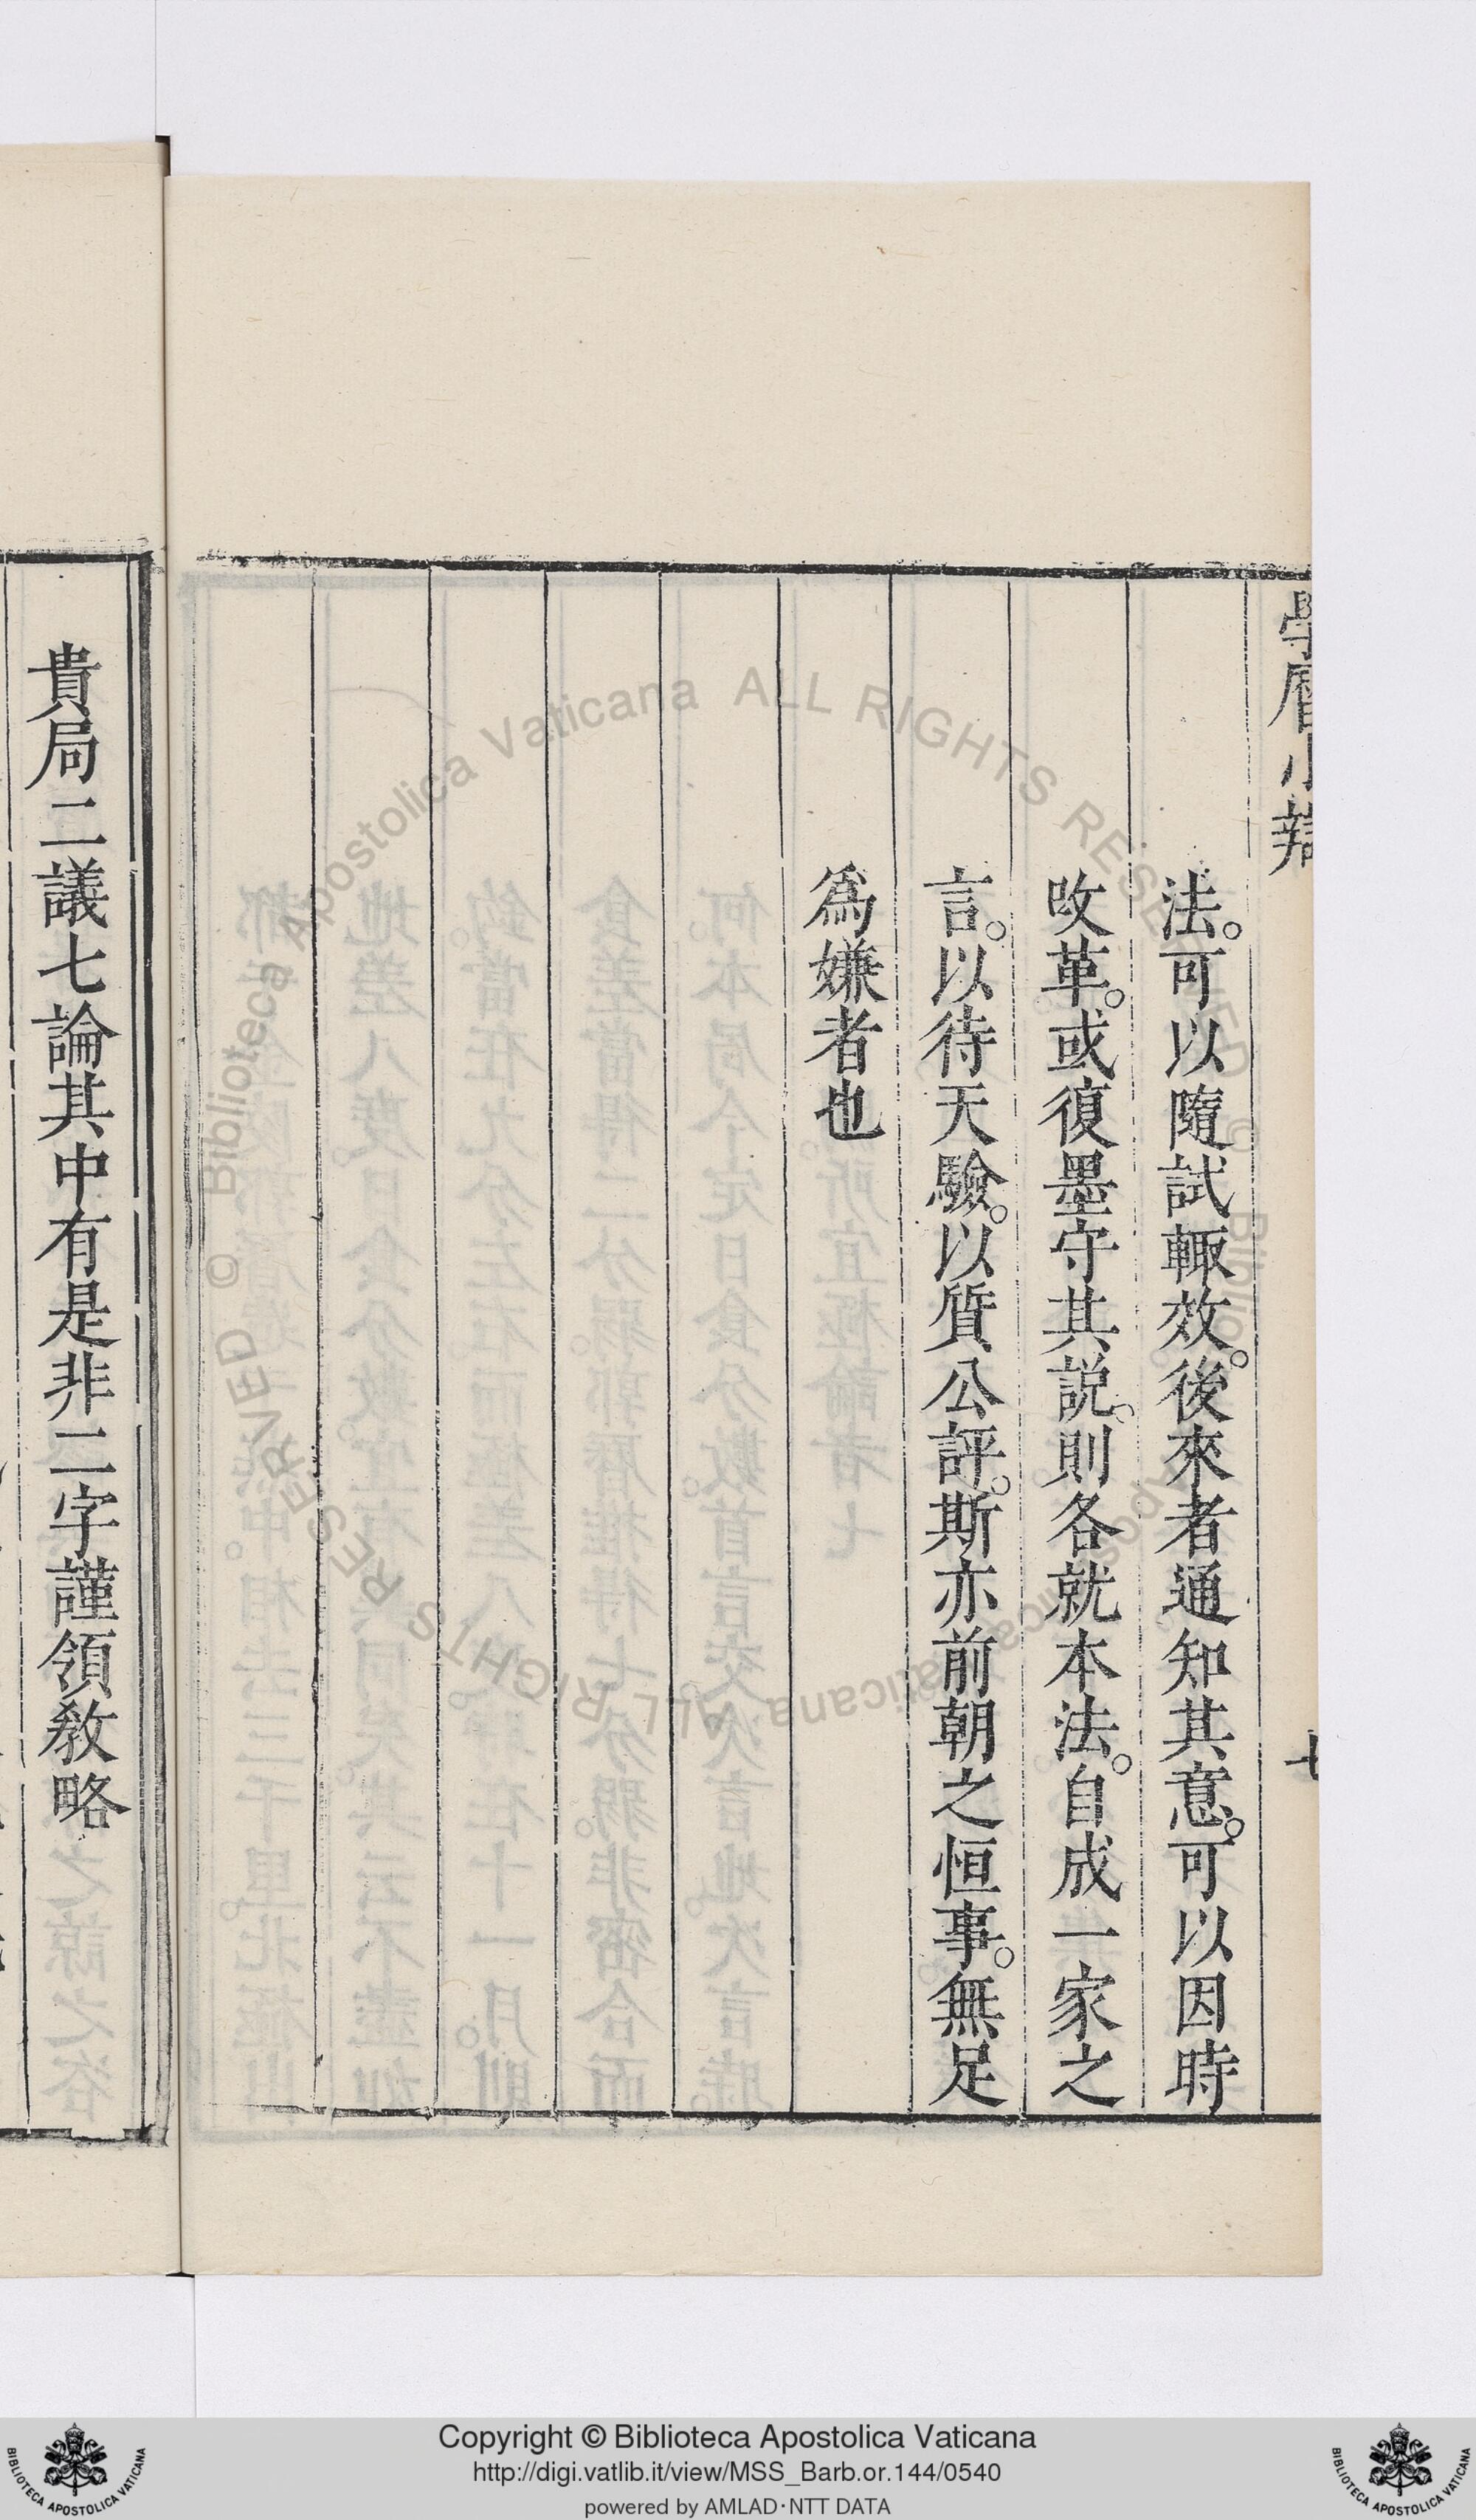 學曆小辯
七
法。可以隨試輙效。後來者通知其意。可以因時
改革。或復墨守其説。則各就本法。自成一家之
言。以待天驗。以質公評。斯亦前朝之恒事。無足
爲嫌者也
貴局二議七論其中有是非二字謹領教略
Copyright © Biblioteca Apostolica Vaticana
http://digi.vatlib.it/view/MSS_Barb.or.144/0540
powered by AMLAD·NTT DATA
BIBLIOTECA APOSTOLICA VATICANA
BIBLIOTECA APOSTOLICA VATICANA
© Biblioteca Apostolica Vaticana ALL RIGHTS RESERVED © Biblioteca Apostolica Vaticana ALL RIGHTS RESERVED